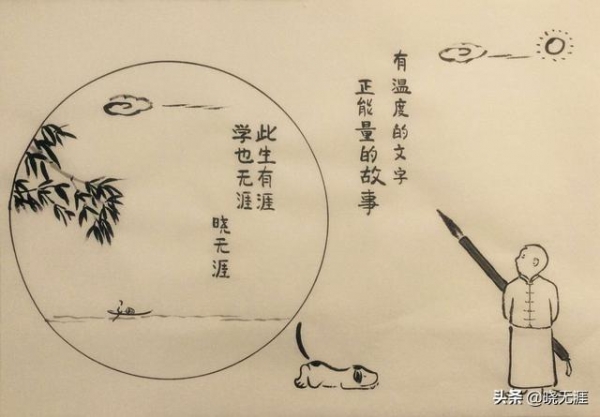 有温度的文字
正能量的故事
此生有涯
学也无涯
晓无涯
头条 @晓无涯